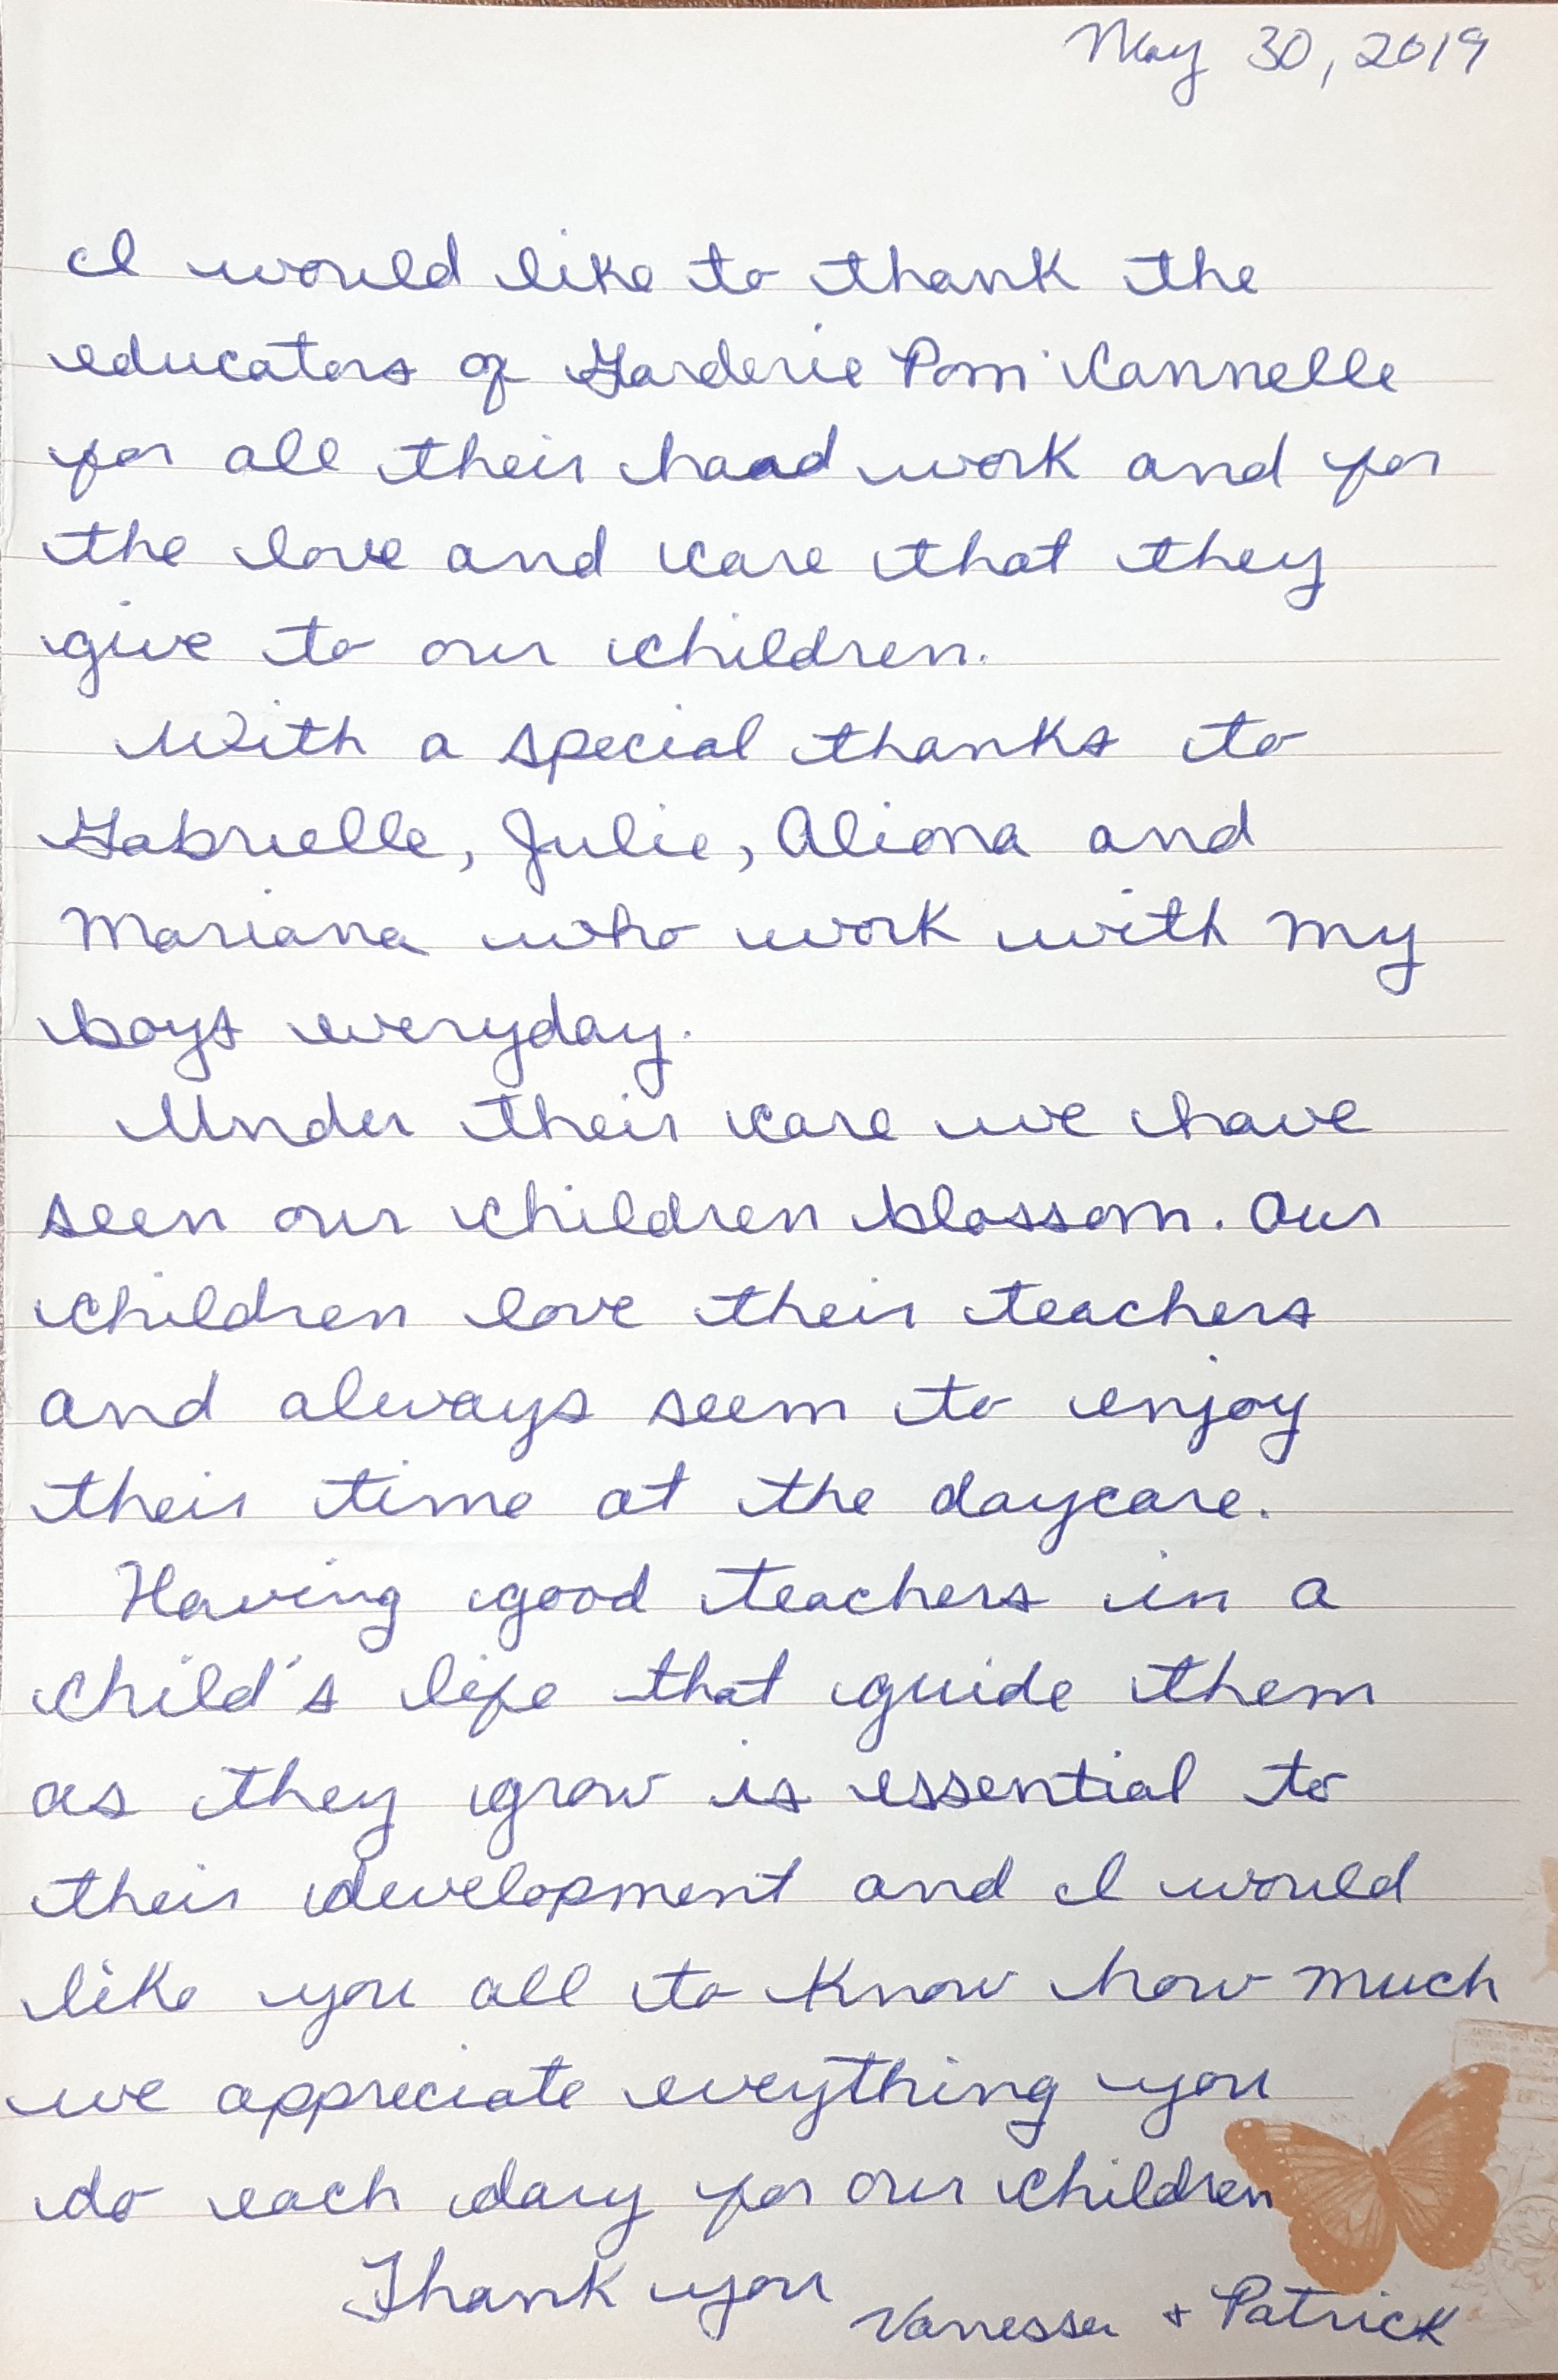 May 30, 2019
I would like to thank the
educators of Garderie Pom'Cannelle
for all their haad work and for
the love and care that they
give to our children.
With a special thanks to
Gabrielle, Julie, Aliona and
Mariana who work with my
boys everyday.
Under their care we have
seen our children blossom. Our
children love their teachers
and always seem to enjoy
their time at the daycare.
Having good teachers in a
child's life that guide them
as they grow is essential to
their development and I would
like you all to know how much
we appreciate eveything you
do each day for our children
Thank you
Vanessa + Patrick